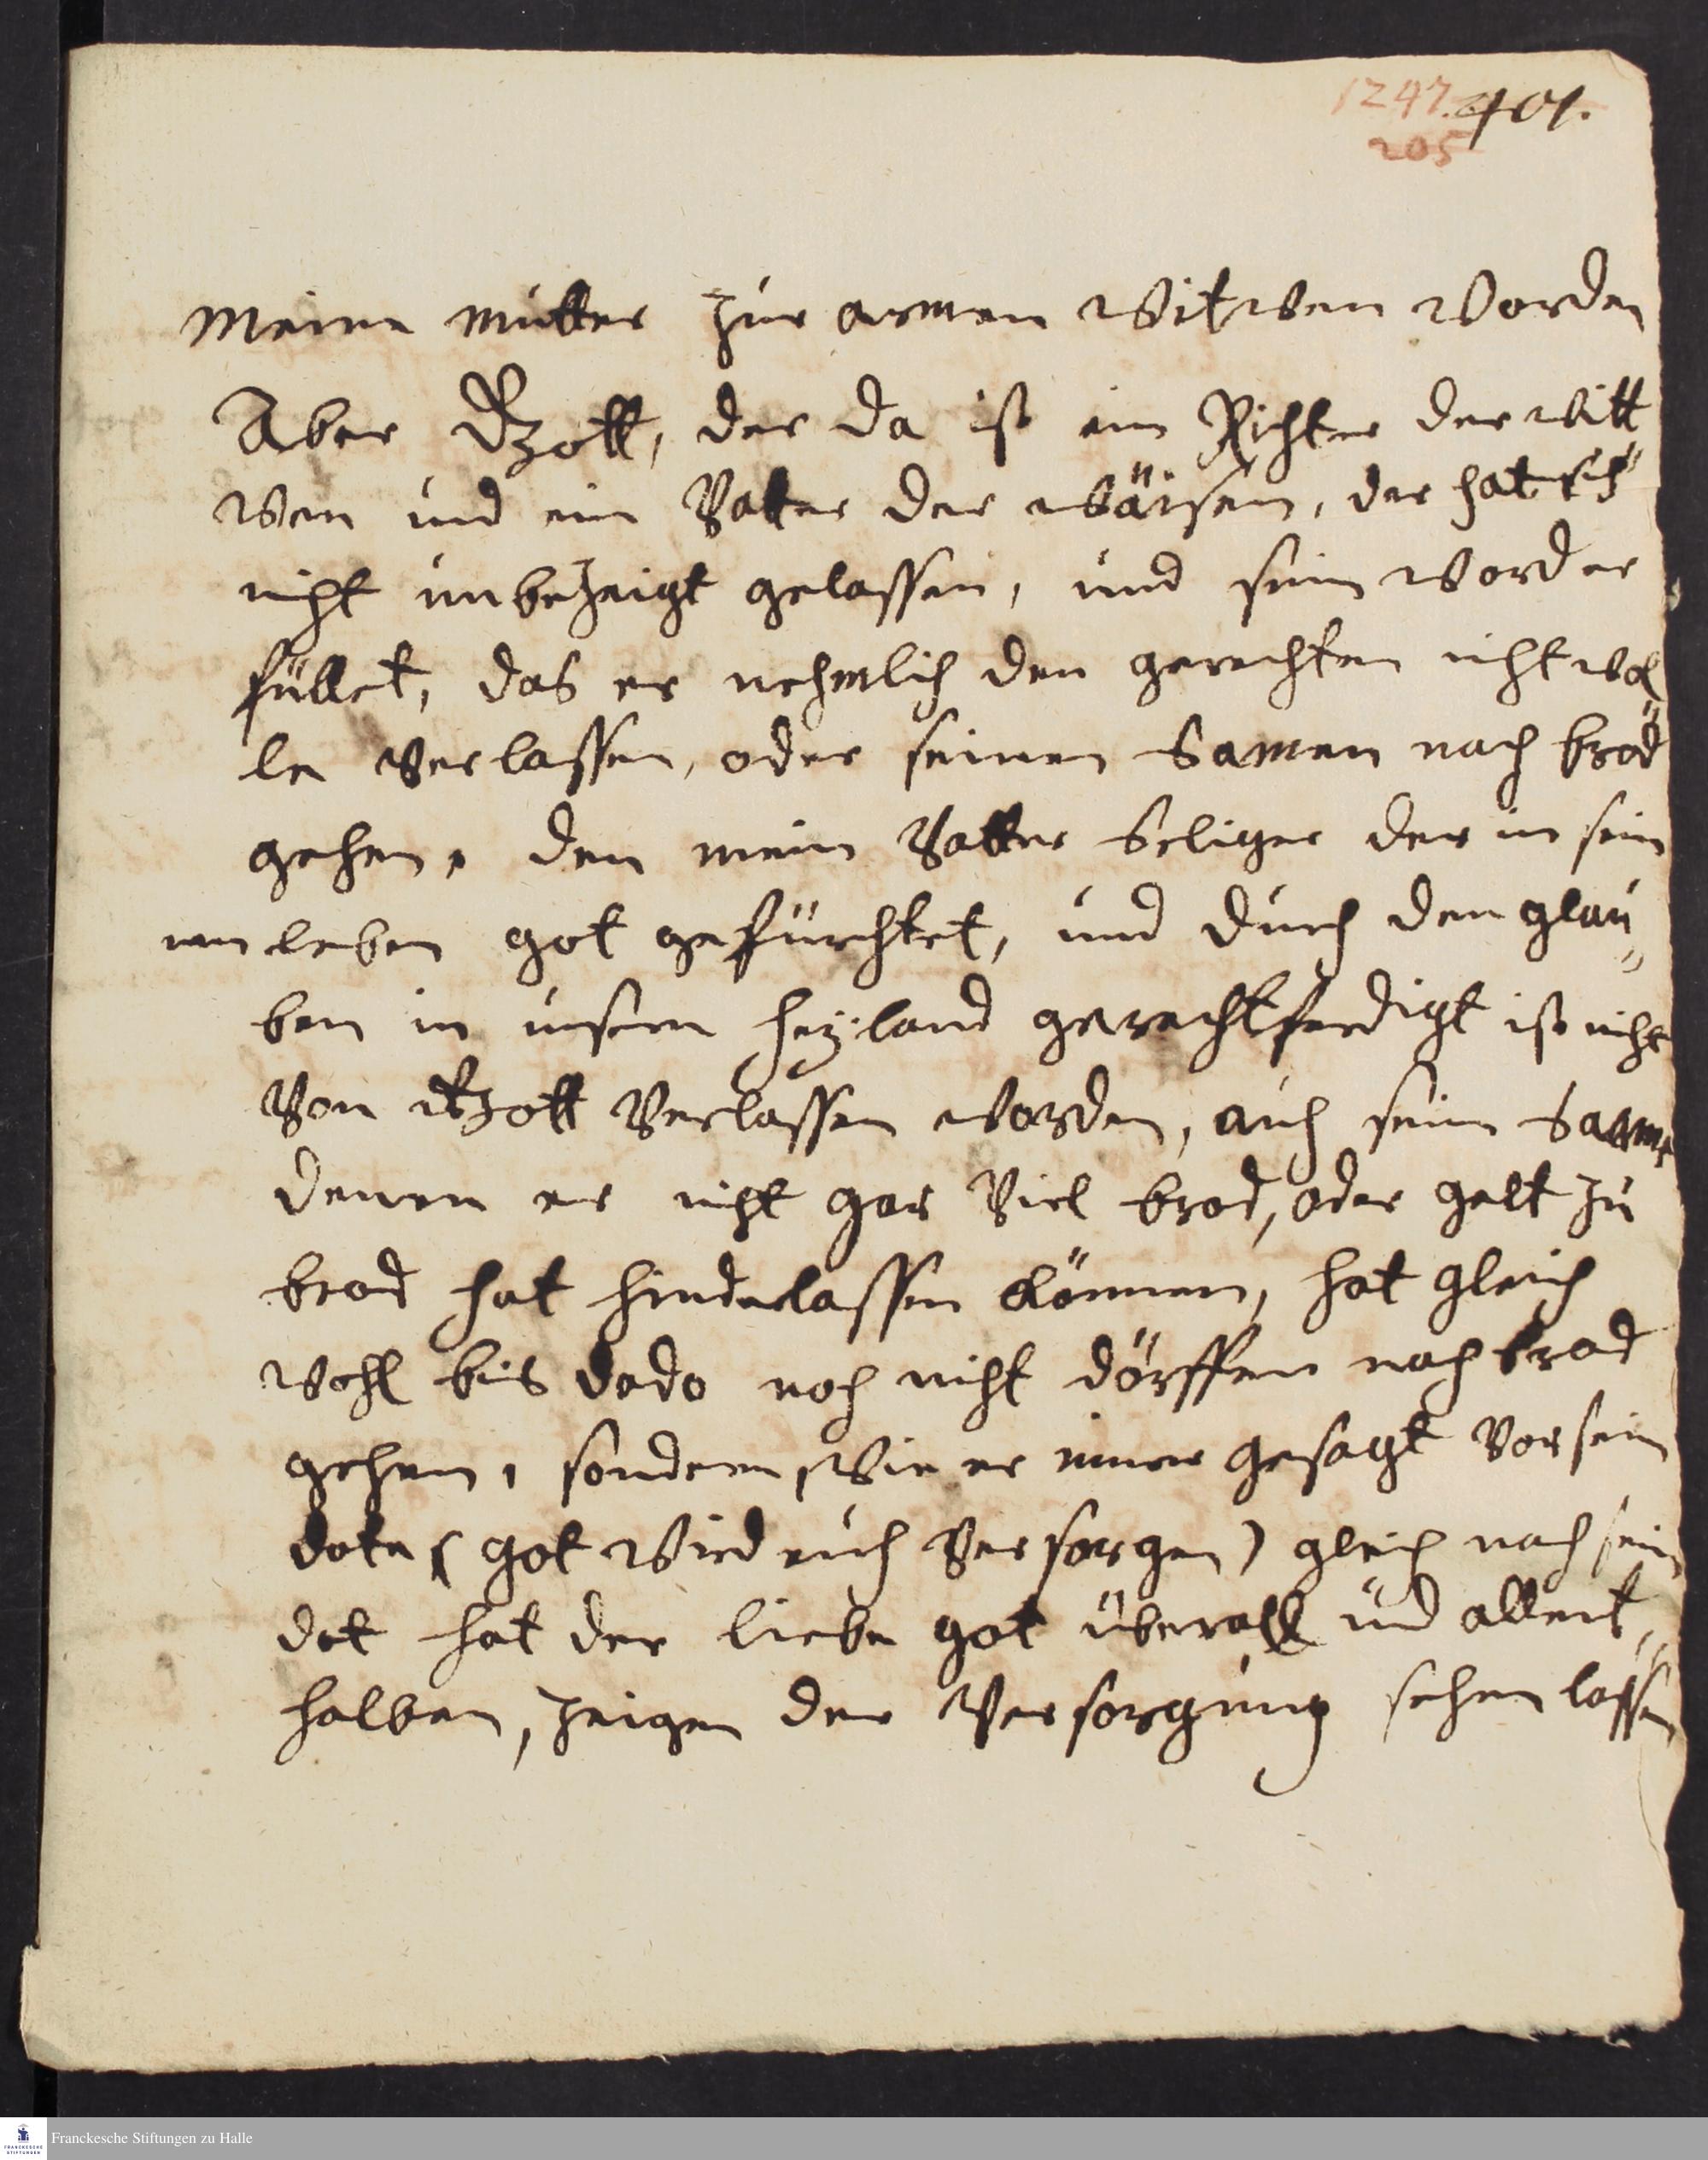 1247. 401.
205
Meine mutter zur armen Witwen worden
Aber Gott, der da ist ein Richter der Witt
wen und ein Vatter der Wäisen, der hat sich
nicht unbezeigt gelassen, und sein Wort er
füllet, das er nehmlich den gerechten nicht wol
le verlassen, oder seinen Samen nach brod
gehen, den mein Vatter Seliger der in sein
em leben got gefürchtet, und durch den glau„
ben in unsern Heyland gerechtferdigt ist nicht
von Gott verlassen worden, auch sein Saame
denen er nicht gar viel brod, oder gelt zu
brod hat hinderlassen können, hat gleich
wohl bis dado noch nicht dörffen nach brod
gehen, sondern, wie er immer gesagt vor sein
dote (got wird euch versorgen) gleich nach sein
dot hat der liebe got überall und allent„
halben, zeigen der versorgung sehen lassen
Franckesche Stiftungen zu Halle